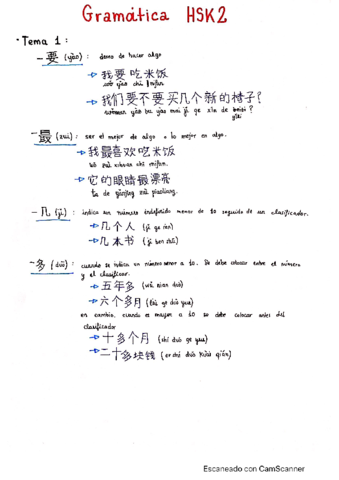 Gramática HSK2
• Tema 1 :
- 要 (yào) : deseo de hacer algo
我要吃米饭
wǒ yào chī mǐfàn
我们要不要买几个新的椅子?
- 最 (zuì) : ser el mejor de algo o lo mejor en algo.
我最喜欢吃米饭
wǒ zuì xǐhuan chī mǐfàn.
它的眼睛最漂亮
ta de yǎnjīng zuì piàoliang.
- 几 (jǐ) : indica un número indefinido menor de 10 seguido de un clasificador.
几个人 (jǐ ge rén)
几本书 (jǐ běn shū)
- 多 (duō) : cuando se indica un número menor a 10. Se debe colocar entre el número
y el clasificador.
五年多 (wǔ nian duō)
六个多月 (liù ge duō yuè)
en cambio, cuando es mayor a 10 se debe colocar antes del
clasificador
十多个月 (shí duō ge yuè)
二十多块钱 (èr shí duō kuài qián)
Escaneado con CamScanner